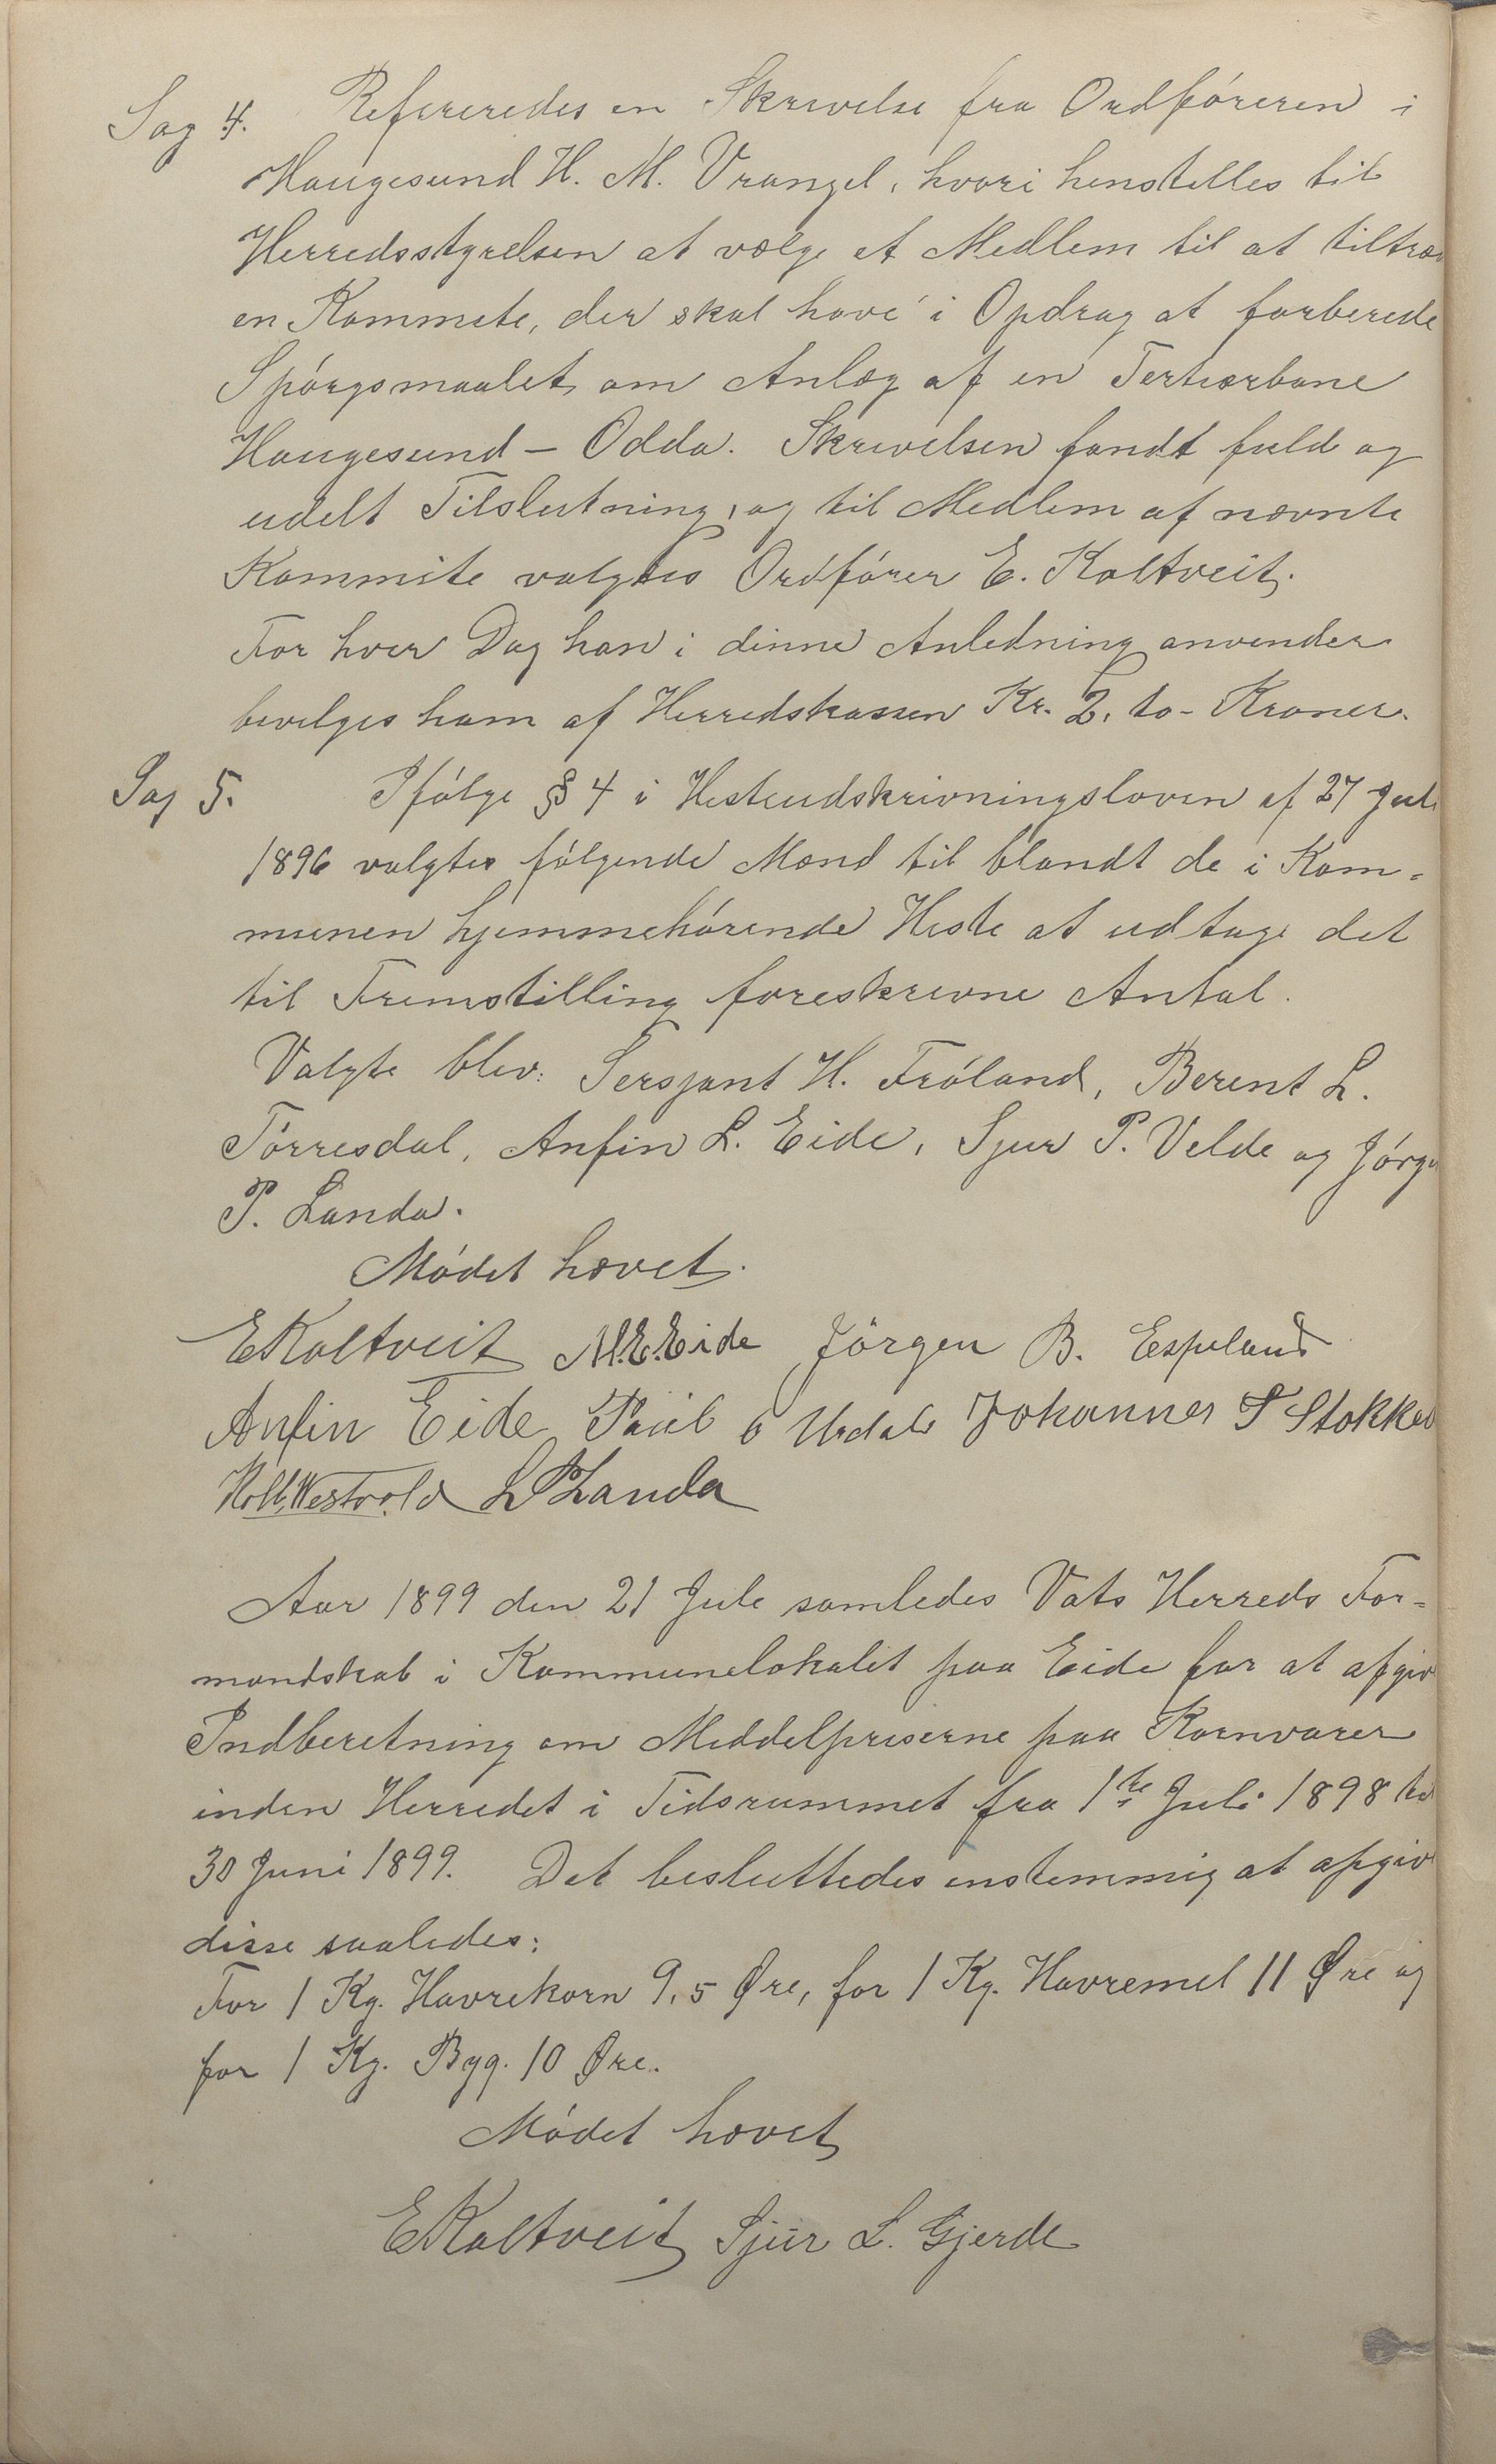 Sag 4. Refereredes en Skrivelse fra Ordføreren i
Haugesund H. M. Vrangel, hvori henstilles til
Herredsstyrelsen at vælge et Medlem til at tiltræ
en Kommete, der skal have i Opdrag at forberede
Spórgsmaalet om Anlæg af en Tertiærbane
Haugesund – Odda. Skrivelsen fandt fuld og
udelt Tilslutning, og til Medlem af nævnte
Kommite valgtes Ordfórer E. Kaltveit.
For hver Dag han i denne Anledning anvender
bevilges ham af Herredskassen Kr. 2. to - Kroner.
Sag 5. Ifólge § 4 i Hesteudskrivningsloven af 27 Juli
1896 valgtes fólgende Mænd til blandt de i Kom=
munen hjemmehórende Heste at udtage det
til Fremstilling foreskrevne Antal.
Valgte blev: Sersjant H. Fróland, Berent L.
Tórresdal, Anfin L. Eide, Sjur P. Velde og Jórge
P. Landa.
Módet hævet.
EKaltveit M.E.Eide Jörgen B. Espeland
Anfin Eide Paul O Urdal Johannes T Stokke
Westvold L P Landa
Aar 1899 den 21 Jule samledes Vats Herreds For=
mandskab i Kommunelokalet paa Eide for at afgiv
Indberetning om Middelpriserne paa Kornvarer
inden Herredet i Tidsrummet fra 1ste Juli 1898 til
30 Juni 1899. Det besluttedes enstemmig at afgiv
disse saaledes:
For 1 Kg. Havrekorn 9,5 Øre, for 1 Kg. Havremel 11 Øre og
for 1 Kg. Byg. 10 Øre.
Módet hævet
EKaltveit Sjur L. Gjerde